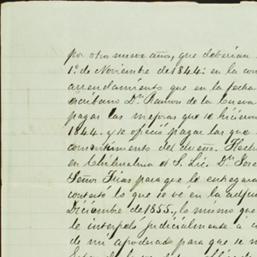 por otro nueve años, que deberian
1º de Noviembre de 1844: en la con
arrendamiento que en la fecha
escribano Dn. Ramon de la Cueva
pagar las mejoras que se hicieron
1844. y se ofrecio pagar las que
consentimiento del dueño. Hecho
en Chihuahua el S. Lic. Dn. José
Señor Frias para que le entregara
contestó lo que se vé en la adjun
Diciembre de 1855, lo mismo que
le interpeló judicialmente a
de mi apoderado para que se m